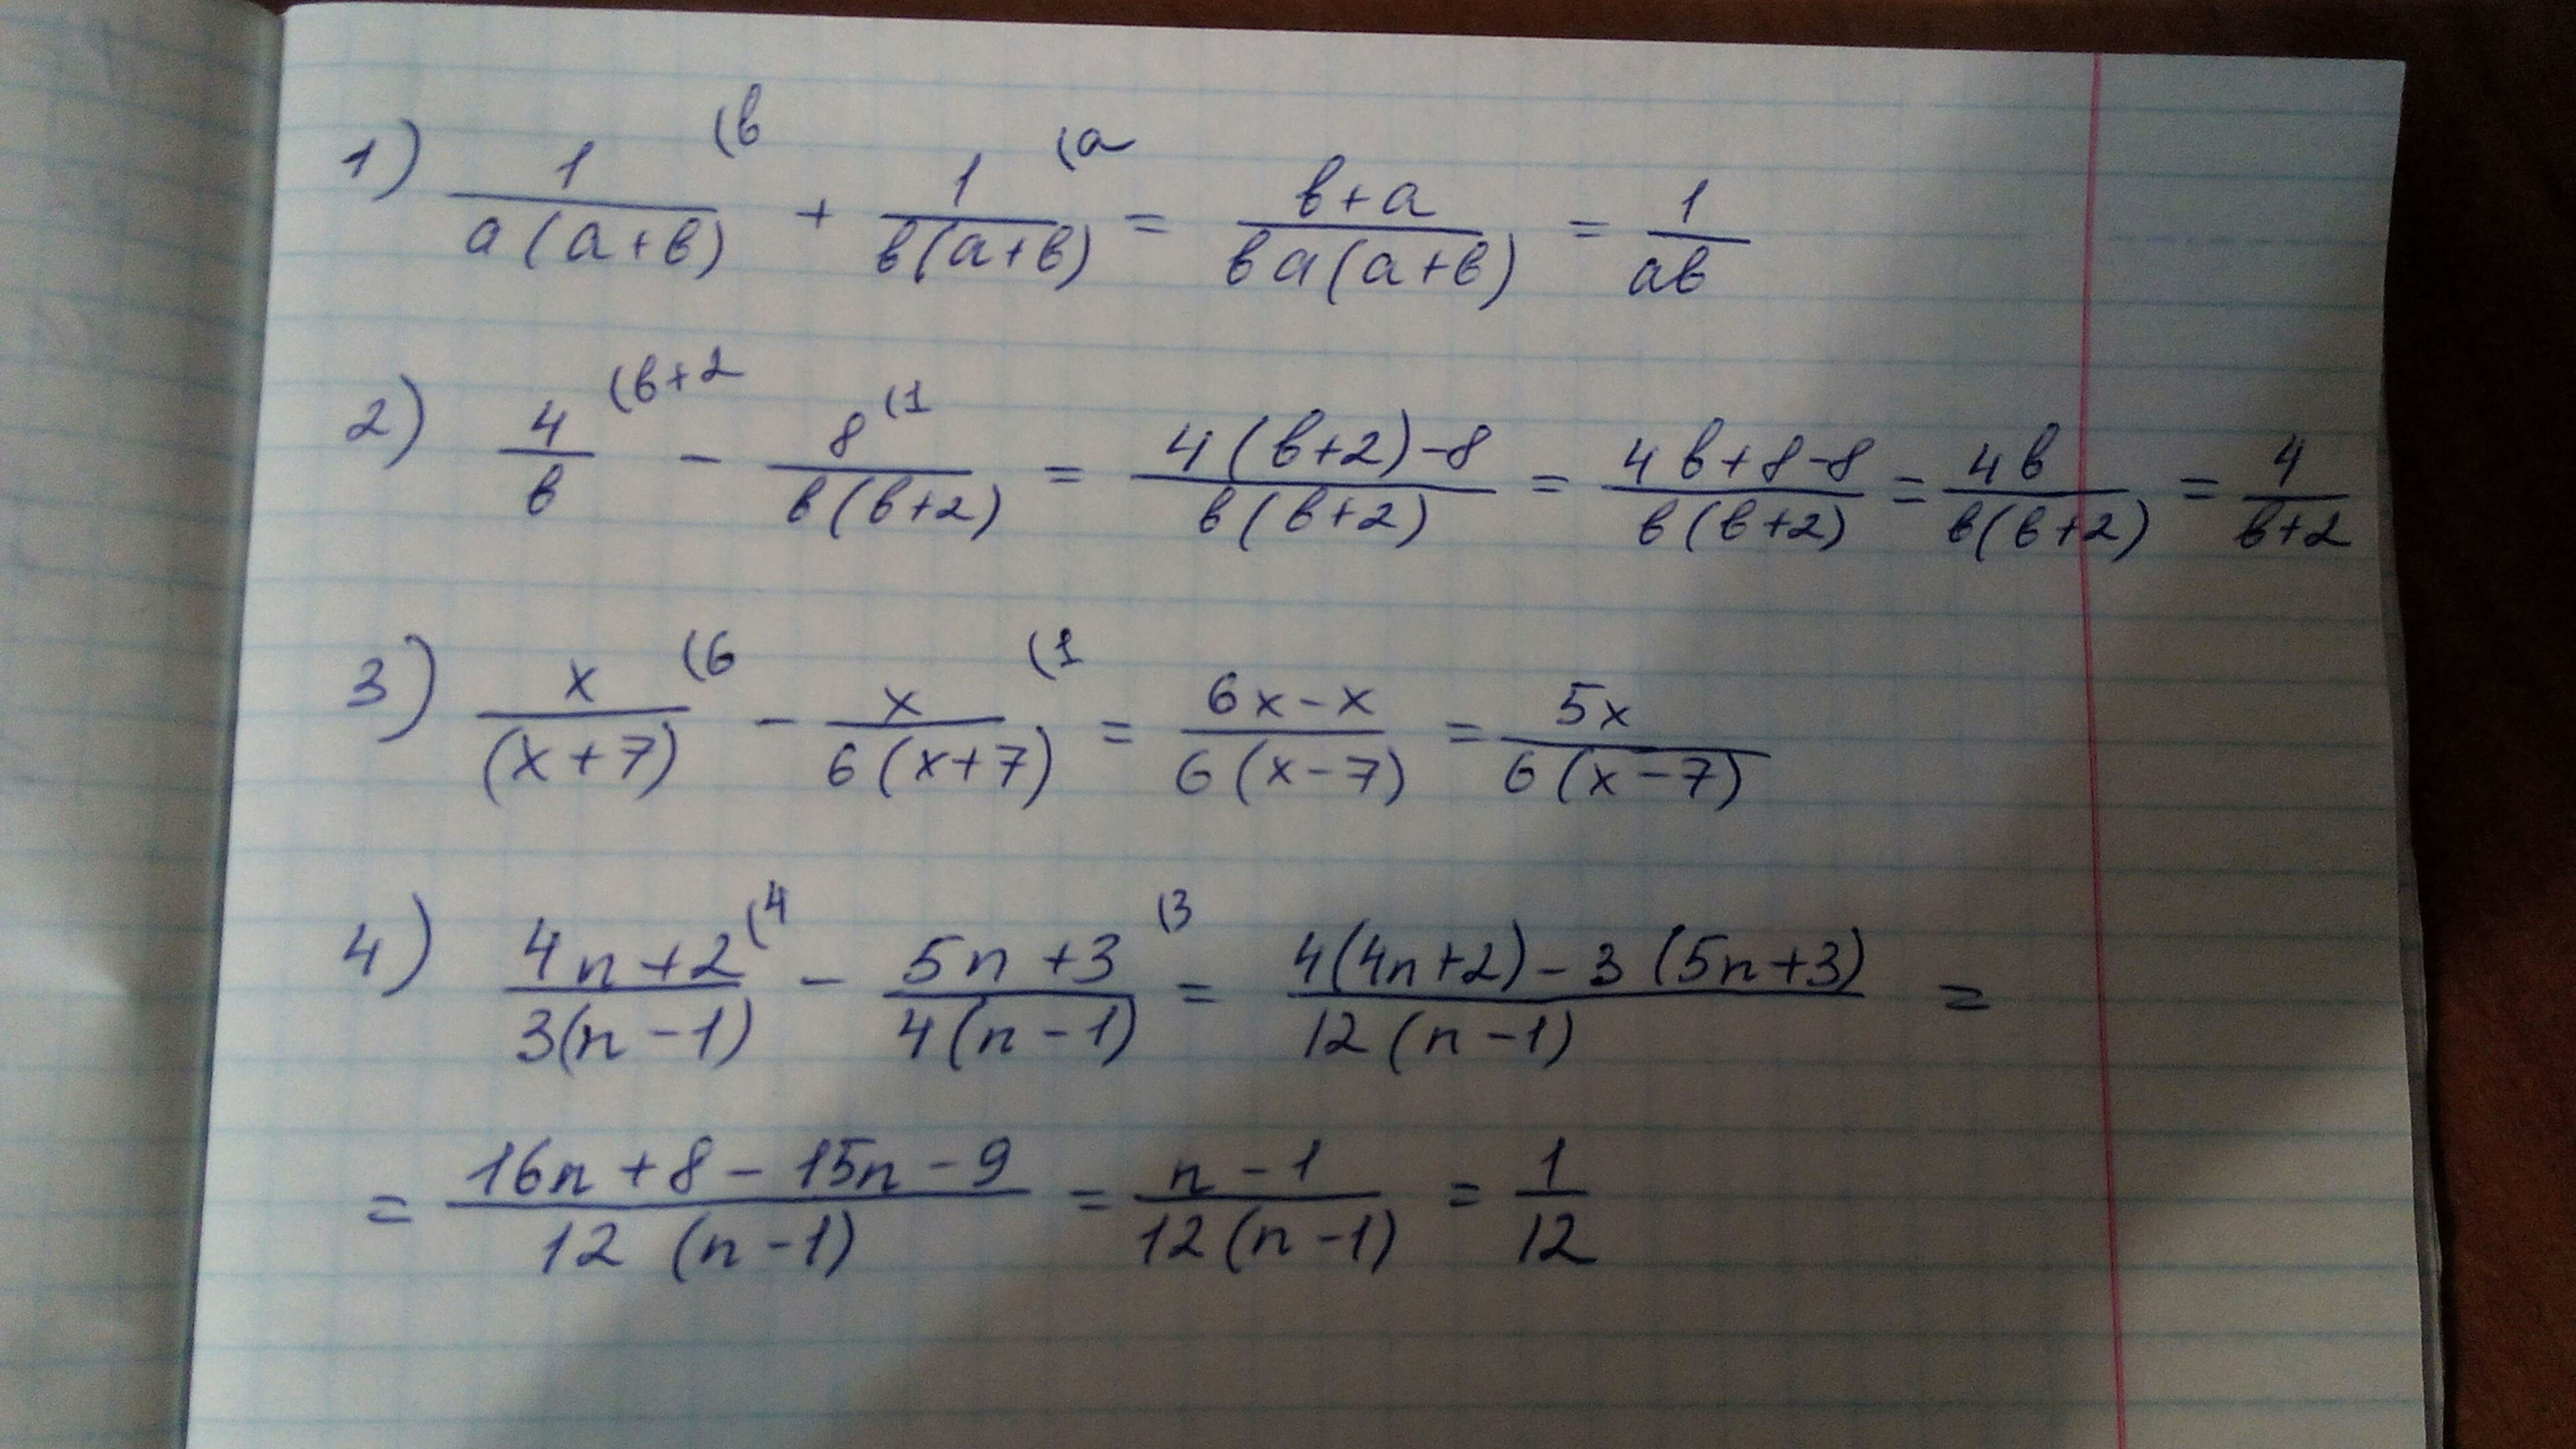 1) 1/(a(a+b)) (b + 1/(b(a+b)) (a = (b+a)/(ba(a+b)) = 1/(ab)
2) 4/b (b+2 - 8/(b(b+2)) (1 = (4(b+2)-8)/(b(b+2)) = (4b+8-8)/(b(b+2)) = 4b/(b(b+2)) = 4/(b+2)
3) x/(x+7) (6 - x/(6(x+7)) (1 = (6x-x)/(6(x-7)) = 5x/(6(x-7))
4) (4n+2)/(3(n-1)) (4 - (5n+3)/(4(n-1)) (3 = (4(4n+2)-3(5n+3))/(12(n-1)) =
= (16n+8-15n-9)/(12(n-1)) = (n-1)/(12(n-1)) = 1/12